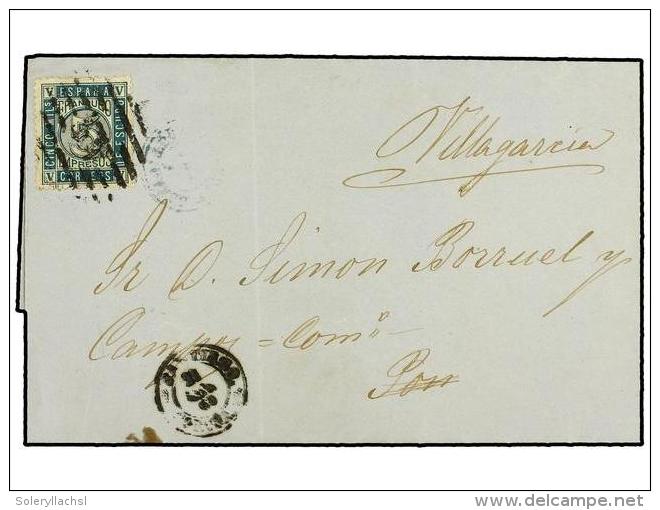 ESPAÑA
FRANQUEO
CINCO MILS
DE ESCUDO
IMPRESOS
CORREOS
Villagarcia
Sr D. Simon Borruel y
Campos = Comº
Pon
Soleryllachsl
delcampe.net